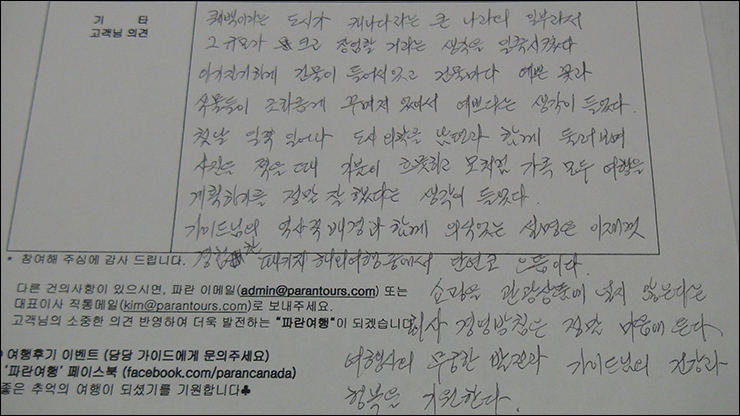 기 타
고객님 의견
퀘벡이라는 도시가 캐나다라는 큰 나라의 일부라서
그 규모가 크고 장엄할 거라는 생각을 일축시켰다.
아기자기하게 건물이 들어서있고 건물마다 예쁜 꽃과
식물들이 조화롭게 꾸며져 있어서 예쁘다는 생각이 들었다.
첫날 일찍 일어나 도시 외곽을 남편과 함께 둘러보며
사진을 찍을 때 기분이 흐뭇하고 모처럼 가족 모두 여행을
계획하기를 정말 잘 했다는 생각이 들었다.
가이드님의 역사적 배경과 함께 의식있는 설명은 이제껏
경험한 패키지 해외여행 중에서 단연코 으뜸이다.
* 참여해 주심에 감사 드립니다.
다른 건의사항이 있으시면, 파란 이메일(admin@parantours.com) 또는
대표이사 직통메일(kim@parantours.com)로 보내주세요.
고객님의 소중한 의견 반영하여 더욱 발전하는 "파란여행"이 되겠습니다
쇼핑을 관광상품에 넣지 않는다는
회사 경영방침은 정말 마음에 든다.
여행사의 무궁한 발전과 가이드님의 건강과
행복을 기원한다.
여행후기 이벤트 (담당 가이드에게 문의주세요)
'파란여행' 페이스북 (facebook.com/parancanada)
좋은 추억의 여행이 되셨기를 기원합니다♣